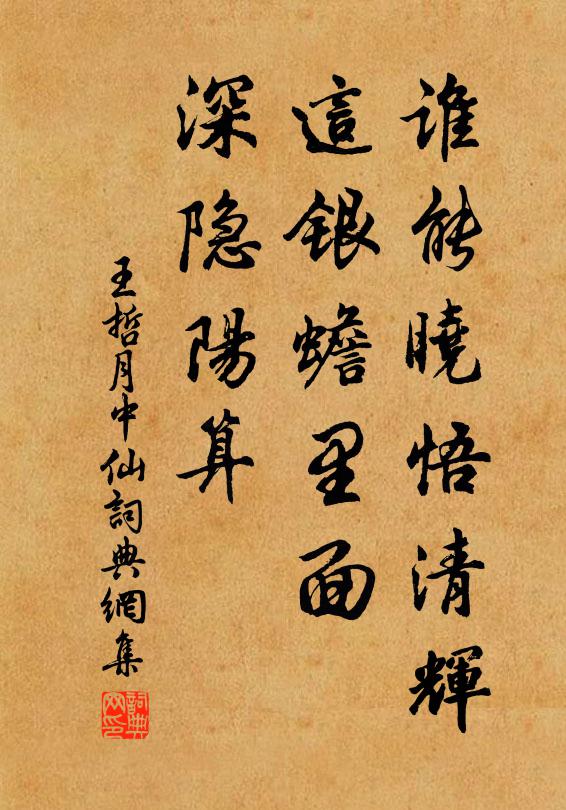 谁能曉悟清輝
這銀蟾里面
深隐陽算
王哲月中仙詞典網集
詞典网印